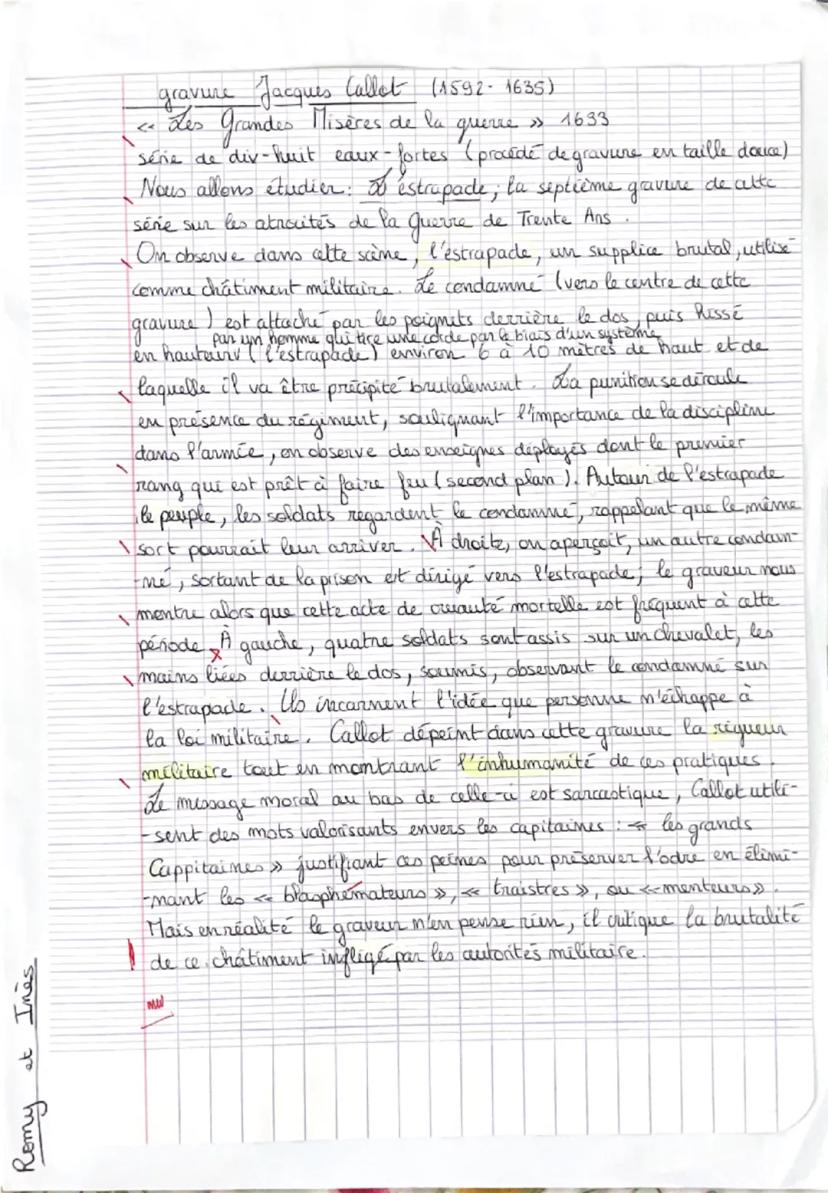 gravure Jacques Callot (1592 - 1635)
« Les Grandes Misères de la guerre » 1633
série de dix-huit eaux-fortes (procédé de gravure en taille douce)
Nous allons étudier : L'éstrapade ; la septième gravure de cette
série sur les atrocités de la Guerre de Trente Ans .
On observe dans cette scène, l'estrapade, un supplice brutal, utilisé
comme châtiment militaire. Le condamné (vers le centre de cette
gravure ) est attaché par les poignets derrière le dos, puis hissé
par un homme qui tire une corde par le biais d'un système
en hauteur ( l'estrapade ) environ 6 à 10 mètres de haut et de
laquelle il va être précipité brutalement . La punition se déroule
en présence du régiment, soulignant l'importance de la discipline
dans l'armée, on observe des enseignes déployés dont le premier
rang qui est prêt à faire feu (second plan ). Autour de l'estrapade
le peuple, les soldats regardent le condamné, rappelant que le même
sort pourrait leur arriver . À droite, on aperçoit, un autre condam-
-né, sortant de la prison est dirigé vers l'estrapade ; le graveur nous
montre alors que cette acte de cruauté mortelle est fréquent à cette
période . À gauche, quatre soldats sont assis sur un chevalet, les
mains liées derrière le dos, soumis, observant le condamné sur
l'estrapade . Ils incarnent l'idée que personne n'échappe à
la loi militaire . Callot dépeint dans cette gravure la rigueur
militaire tout en montrant l'inhumanité de ces pratiques .
Le message moral au bas de celle-ci est sarcastique, Callot utili-
-sent des mots valorisants envers les capitaines : « les grands
Cappitaines » justifiant ces peines pour préserver l'odre en élimi-
-nant les « blasphémateurs », « traistres », ou « menteurs » .
Mais en réalité le graveur n'en pense rien, il critique la brutalité
de ce châtiment infligé par les autorités militaire .
Romy et Inès